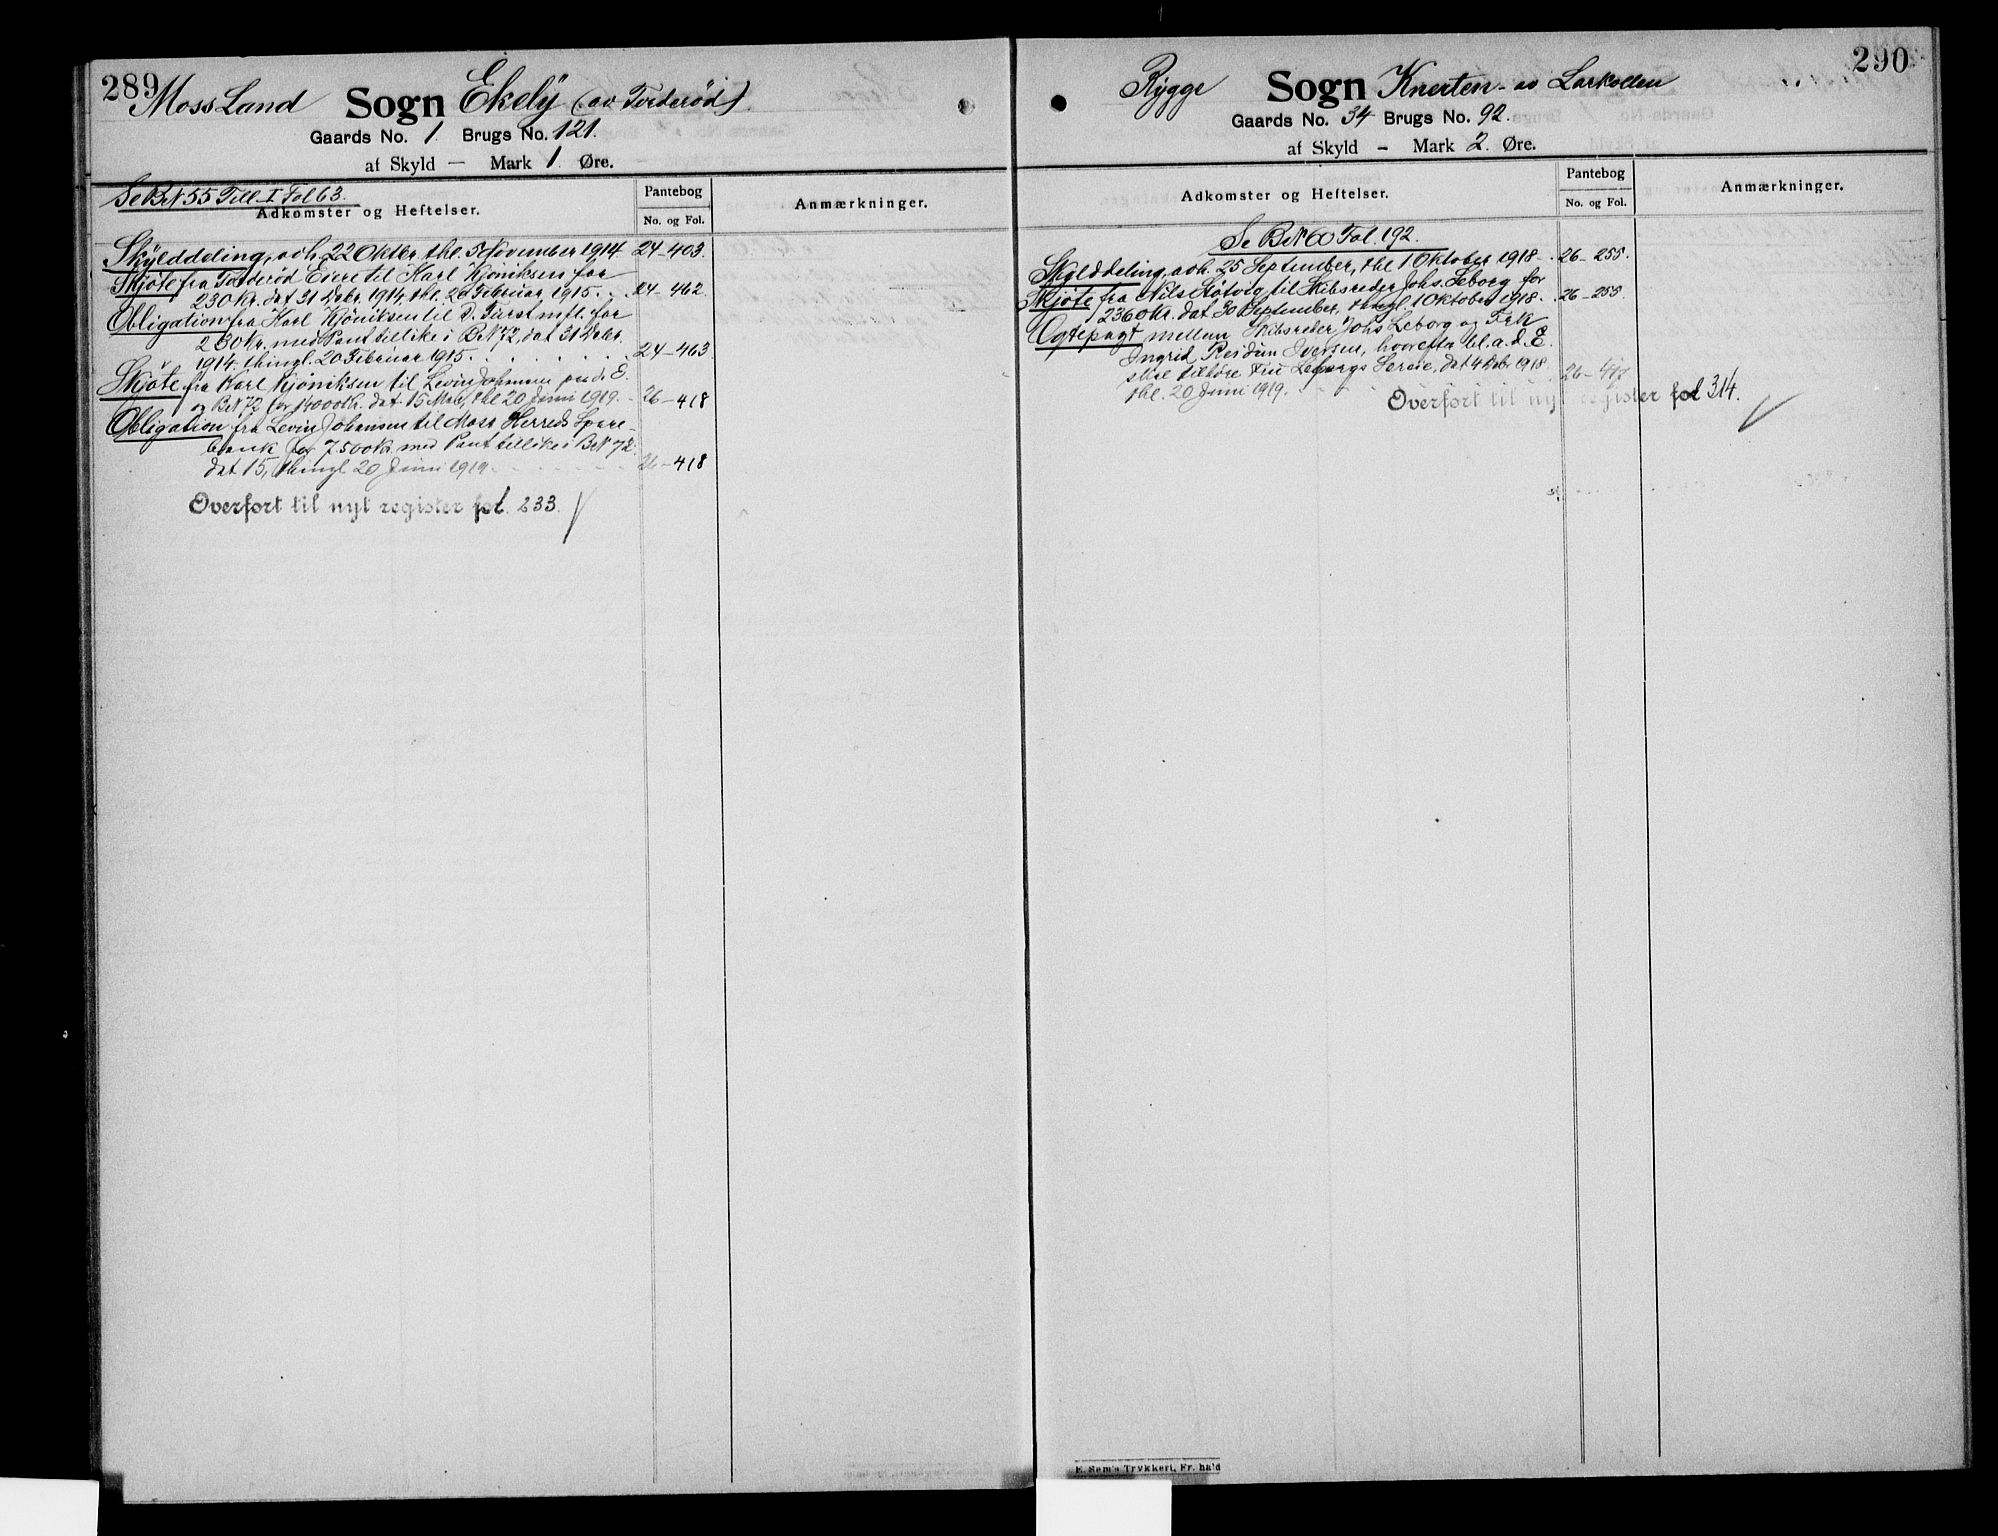 289
Moss Land Sogn Ekely (av Torderød)
Gaards No. 1. Brugs No. 121.
af Skyld — Mark 1. Øre.
Se BN 55 Till. I Fol 63.
Adkomster og Heftelser.
Pantebog
No. og Fol.
Anmærkninger.
Skylddeling, avh. 22 Oktbr, thl. 5 November 1914 24-403.
Skjøte fra Torderød Eiere til Karl Kjöniksen for
230 Kr. dat 31 Debr. 1914, thl. 20 Februar 1915. 24-462.
Obligation fra Karl Kjöniksen til D. Fürst mfl. for
230 Kr. med Pant tillike i BN 72, dat 31 Debr.
1914. thingl. 20 Februar 1915. 24-463
Skjøte fra Karl Kjöniksen til Levin Johansen paa d. E.
og BN 72 for 14000 Kr. dat. 15 Mai, thl 20 Juni 1919. 26-418
Obligation fra Levin Johansen til Moss Herreds Spare-
bank for 7.500 Kr. med Pant tillike i BN 72.
dat 15, thingl 20 Juni 1919. 26-418
Overført til nyt register fol. 233.
290
Rygge Sogn Knerten - av Larkollen
Gaards No. 34 Brugs No. 92.
af Skyld — Mark 2. Øre.
Adkomster og Heftelser.
Pantebog
No. og Fol.
Anmærkninger.
Se BN 60 Fol. 192.
Skylddeling, avh. 25 September, thl 1 Oktober 1918. 26-255.
Skjøte fra Nils Støtvig til Skibsreder Johs. Leborg for
2360 Kr. dat 30 September, thingl. 1 Oktober 1918. 26-255
Egtepagt mellem Skibsreder Johs Leborg og Frk
Ingrid Reidun Iversen, hvorefter bl. a. d. E.
skal tilhøre Fru Leborgs Særeie, dat 4 Debr 1918
thl. 20 Juni 1919.
Overført til nyt register fol 314.
E. Sem's Trykkeri, Fr. hald